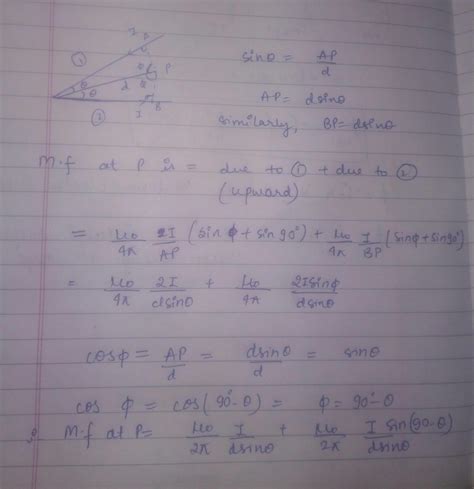 I A
① sinθ = AP/d
θ P
θ d
AP = dsinθ
② I B
similarly, BP = dsinθ
M.f at P is = due to ① + due to ②
(upward)
= μ₀/4π 2I/AP (sin φ + sin 90°) + μ₀/4π I/BP (sinφ + sin90°)
= μ₀/4π 2I/dsinθ + μ₀/4π 2Isinφ/dsinθ
cosφ = AP/d = dsinθ/d = sinθ
cos φ = cos(90°-θ) = φ = 90°-θ
M.f at P = μ₀/2π I/dsinθ + μ₀/2π I sin(90-θ)/dsinθ